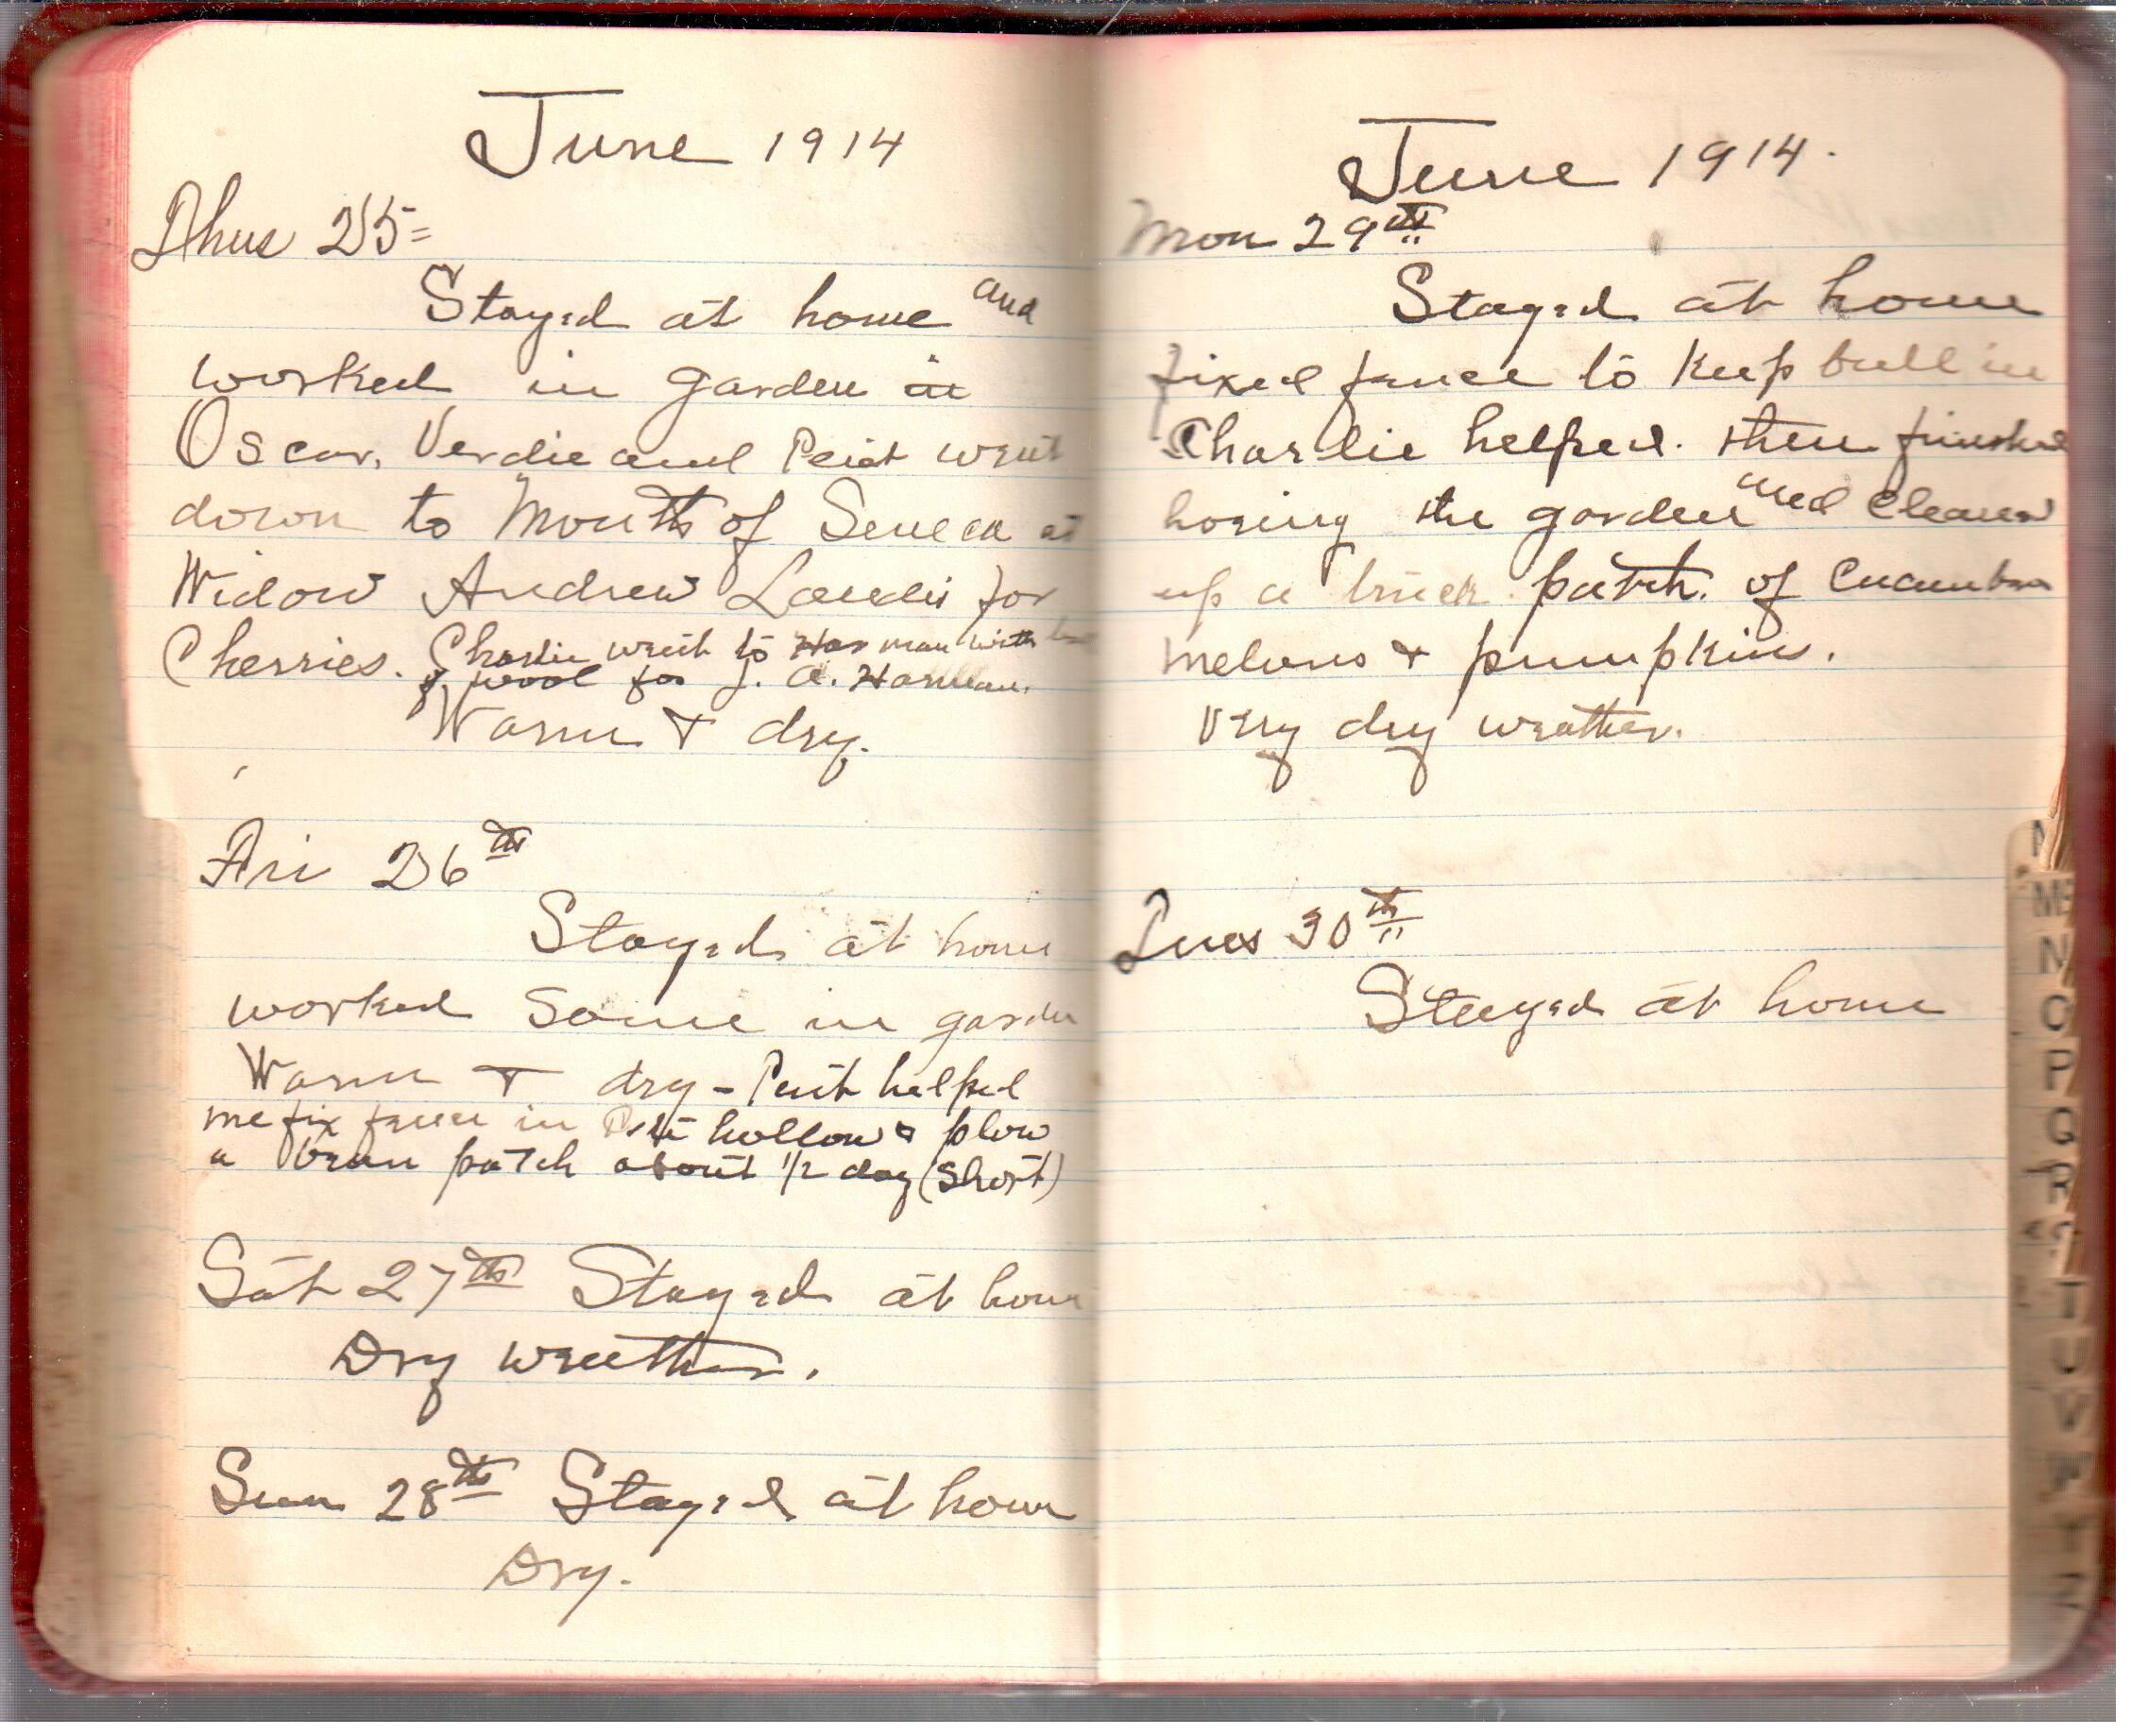 June 1914
Thus 25=
Stayed at home and
worked in garden
Oscar, Verdie and went
down to Mouth of Seneca at
Widow Andrew Landis for
Cherries. Charlie went to Harman with
wool for J. A. Harman.
Warm & dry.
Fri 26th
Stayed at home
worked some in garden
Warm & dry - helped
me fix fence in hollow & plow
a bean patch about 1/2 day (short)
Sat 27th Stayed at home
Dry weather.
Sun 28th Stayed at home
Dry.
June 1914.
Mon 29th
Stayed at home
fixed fence to keep bull in
Charlie helped. then finished
hoeing the garden and cleaned
up a patch. of Cucumbers
melons & pumpkins.
Very dry weather.
Tues 30th
Stayed at home
M
N
O
P
Q
R
S
T
U
V
W
Y
Z